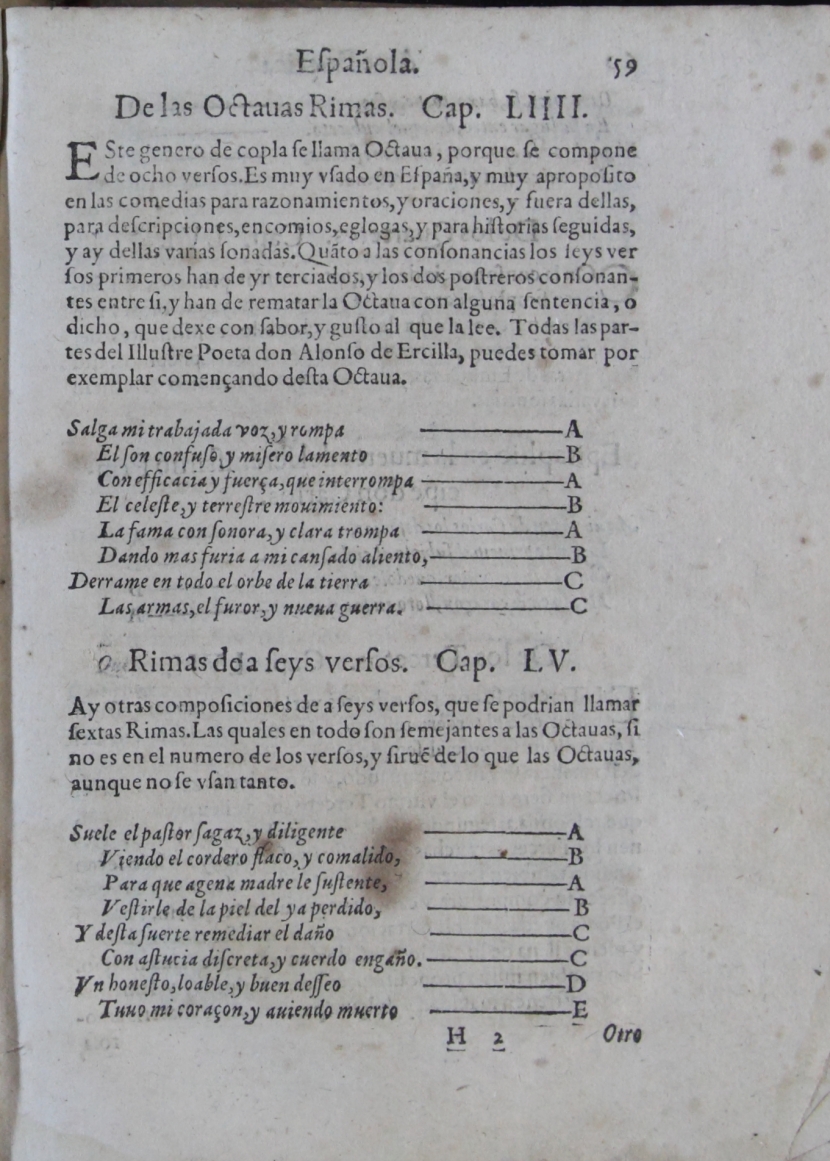 Eſpañola. 59
De las Octauas Rimas. Cap. LIIII.
ESte genero de copla ſe llama Octaua, porque ſe compone
de ocho verſos. Es muy vſado en Eſpaña, y muy apropoſito
en las comedias para razonamientos, y oraciones, y fuera dellas,
para deſcripciones, encomios, eglogas, y para hiſtorias ſeguidas,
y ay dellas varias ſonadas. Quãto a las conſonancias los ſeys ver
ſos primeros han de yr terciados, y los dos poſtreros conſonan-
tes entre ſi, y han de rematar la Octaua con alguna ſentencia, o
dicho, que dexe con ſabor, y guſto al que la lee. Todas las par-
tes del Illuſtre Poeta don Alonſo de Ercilla, puedes tomar por
exemplar començando deſta Octaua.
Salga mi trabajada voz, y rompa A
El ſon confuſo, y miſero lamento B
Con efficacia y fuerça, que interrompa A
El celeſte, y terreſtre mouimiento: B
La fama con ſonora, y clara trompa A
Dando mas furia a mi canſado aliento, B
Derrame en todo el orbe de la tierra C
Las armas, el furor, y nueua guerra. C
õ Rimas de a ſeys verſos. Cap. LV.
Ay otras compoſiciones de a ſeys verſos, que ſe podrian llamar
ſextas Rimas. Las quales en todo ſon ſemejantes a las Octauas, ſi
no es en el numero de los verſos, y ſiruẽ de lo que las Octauas,
aunque no ſe vſan tanto.
Suele el paſtor ſagaz, y diligente A
Viendo el cordero flaco, y comalido, B
Para que agena madre le ſuſtente, A
Veſtirle de la piel del ya perdido, B
Y deſta ſuerte remediar el daño C
Con aſtucia diſcreta, y cuerdo engaño. C
Vn honeſto, loable, y buen deſſeo D
Tuuo mi coraçon, y auiendo muerto E
H 2 Otro